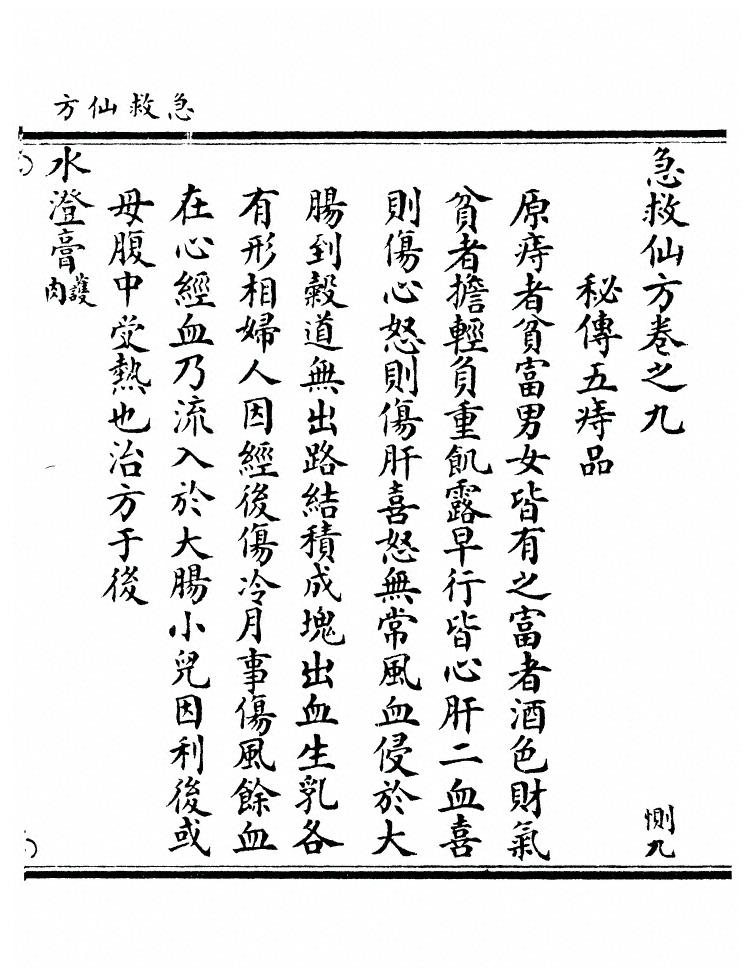 急救仙方
急救仙方卷之九
惻九
秘傳五痔品
原痔者貧富男女皆有之富者酒色財氣
貧者擔輕負重飢露早行皆心肝二血喜
則傷心怒則傷肝喜怒無常風血侵於大
腸到穀道無出路結積成塊出血生乳各
有形相婦人因經後傷冷月事傷風餘血
在心經血乃流入於大腸小兒因利後或
母腹中受熱也治方于後
水澄膏護肉